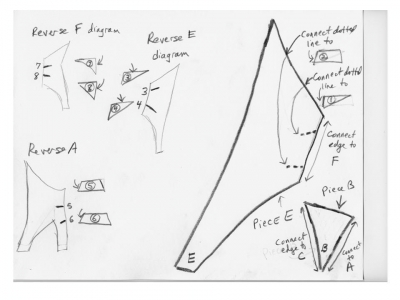 Reverse F diagram
7
8
7
8
Reverse E
diagram
3
4
3
4
Connect dotted
line to
2
Connect dotted
line to
1
Connect
edge to
F
Reverse A
5
6
5
6
Piece E
E
Piece B
B
Connect
edge to
C
Connect
to
A